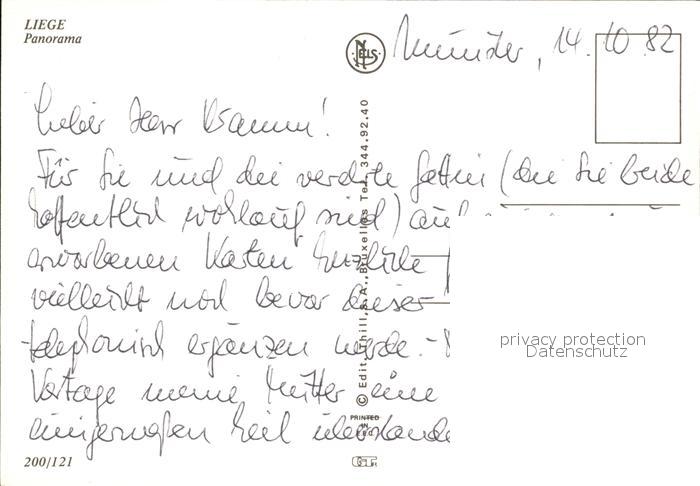 LIEGE
Panorama
NELS
Münster, 14. 10. 82
Lieber Herr Bamm!
Für Sie und die verehrte Gattin (die Sie beide
hoffentlich wohlauf sind) auf
erworbenen Karten herzliche
vielleicht noch bevor dieser
telephonisch ergänzen werde. -
Vortage meine Mutter eine
einigermaßen heil überstande
© Edit. Thill, S.A., Bruxelles Tel. 344.92.40
privacy protection
Datenschutz
PRINTED
IN
E.E.C.
200/121